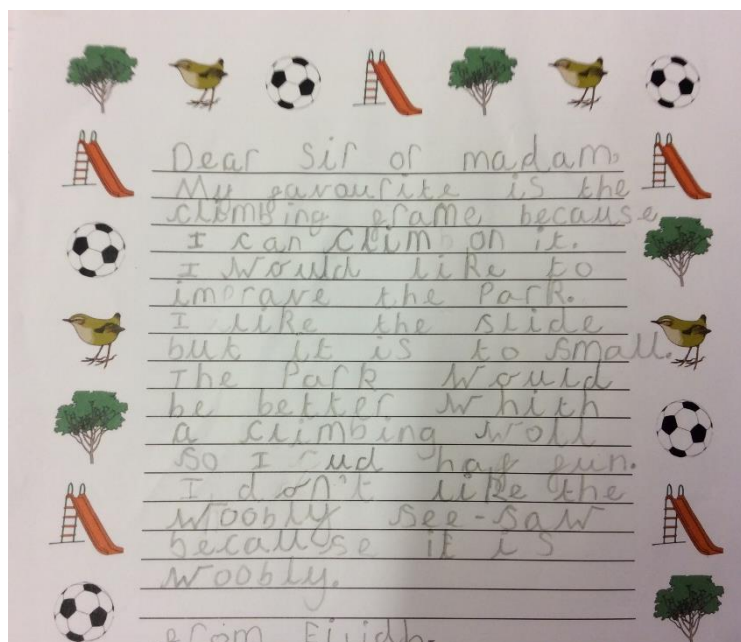 Dear Sir or madam.
My favourite is the
climbing frame because
I can climb on it.
I would like to
imprave the Park.
I like the slide
but it is to small.
The Park would
be better whith
a climbing woll
so I cud haf fun.
I don't like the
woobly see-saw
because it is
woobly.
from Eilidh.